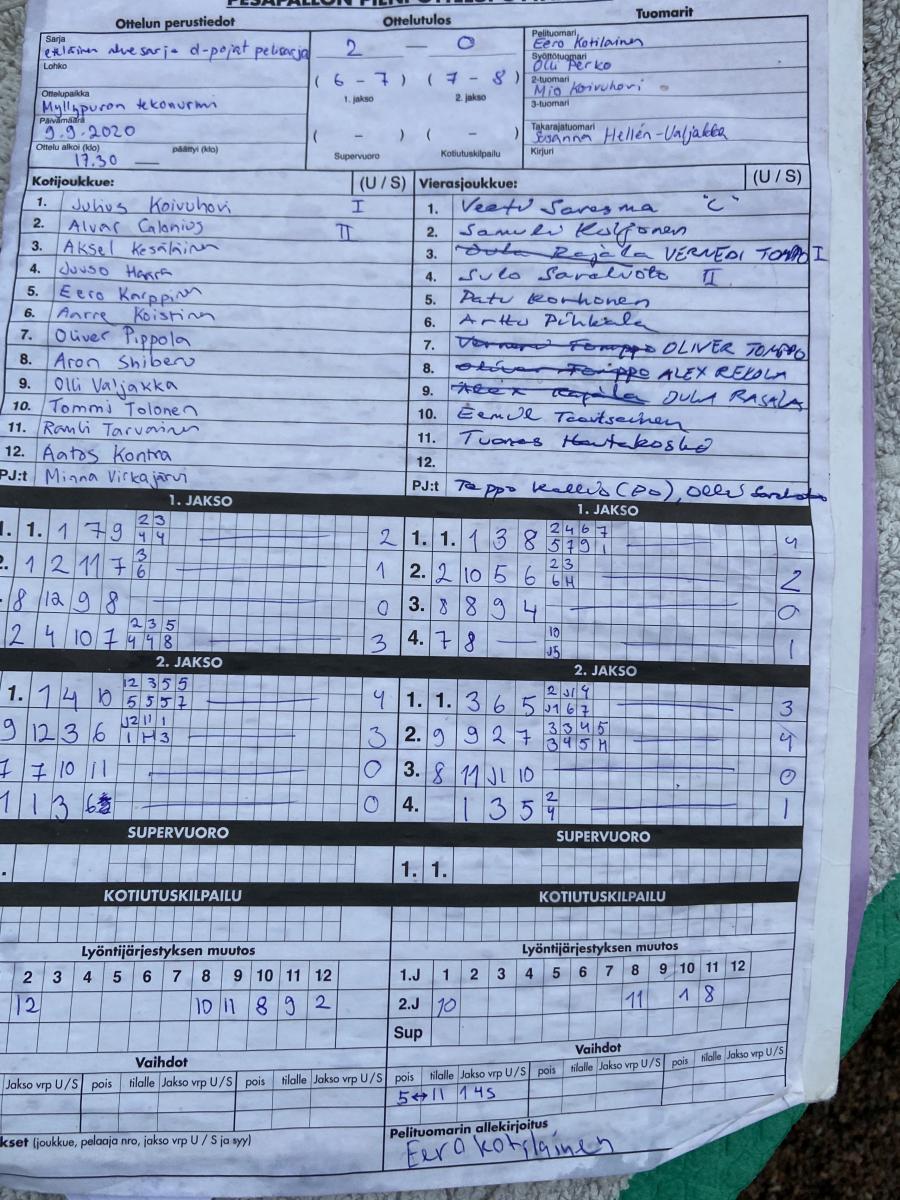 Ottelun perustiedot
Ottelutulos
Tuomarit
Sarja
eteläinen aluesarja d-pojat pelisarja
Lohko
Ottelupaikka
Myllypuron tekonurmi
Päivämäärä
9.9.2020
Ottelu alkoi (klo) päättyi (klo)
17.30 —
2 — 0
( 6 - 7 ) ( 7 - 8 )
1. jakso 2. jakso
( - ) ( - )
Supervuoro Kotiutuskilpailu
Pelituomari
Eero Kotilainen
Syöttötuomari
Olli Perko
2-tuomari
Mio Koivuhovi
3-tuomari
Takarajatuomari
Susanna Hellén-Valjakka
Kirjuri
Kotijoukkue: (U / S)
1. Julius Koivuhovi I
2. Alvar Calonius II
3. Aksel Kesäläinen
4. Juuso Hanra
5. Eero Karppinen
6. Aarre Koistinen
7. Oliver Pippola
8. Aron Shiberu
9. Olli Valjakka
10. Tommi Tolonen
11. Rauli Tarvainen
12. Aatos Kontra
PJ:t Minna Virkajärvi
Vierasjoukkue: (U / S)
1. Veetu Saresma "C"
2. Samuli Kuljonen
3. VERNERI TOMPPO I
4. Sulo II
5. Patu Korhonen
6. Arttu Pihkala
7. Verneri Tomppo OLIVER TOMPPO
8. Oliver Tomppo ALEX REKOLA
9. RAJALA
10. Eemil
11. Tuomas Hautakoski
12.
PJ:t Teppo Kallio (PD), Olli
1. JAKSO
1. 1. 1 7 9 2 3 2
4 4
2. 1 2 11 7 3 1
6
8 12 9 8 0
2 4 10 7 2 3 5 3
4 4 8
1. JAKSO
1. 1. 1 3 8 2 4 6 7 4
5 7 9 1
2. 2 10 5 6 2 3 2
6 H
3. 8 8 9 4 0
4. 7 8 — 10 1
J5
2. JAKSO
1. 1 4 10 12 3 5 5 4
5 5 5 7
9 12 3 6 J2 11 1 3
1 H 3
7 7 10 11 0
1 1 3 6 0
2. JAKSO
1. 1. 3 6 5 2 J1 4 3
J1 6 7
2. 9 9 2 7 3 3 4 5 4
3 4 5 H
3. 8 11 J1 10 0
4. 1 3 5 2 1
4
SUPERVUORO
SUPERVUORO
1. 1.
KOTIUTUSKILPAILU
KOTIUTUSKILPAILU
Lyöntijärjestyksen muutos
2 3 4 5 6 7 8 9 10 11 12
12 10 11 8 9 2
Lyöntijärjestyksen muutos
1.J 1 2 3 4 5 6 7 8 9 10 11 12
2.J 10 11 1 8
Sup
Vaihdot
Jakso vrp U / S pois tilalle Jakso vrp U / S pois tilalle Jakso vrp U / S
Vaihdot
pois tilalle Jakso vrp U / S pois tilalle Jakso vrp U / S pois tilalle Jakso vrp U / S
5 ↔ 11 1 4S
(joukkue, pelaaja nro, jakso vrp U / S ja syy)
Pelituomarin allekirjoitus
Eero Kotilainen